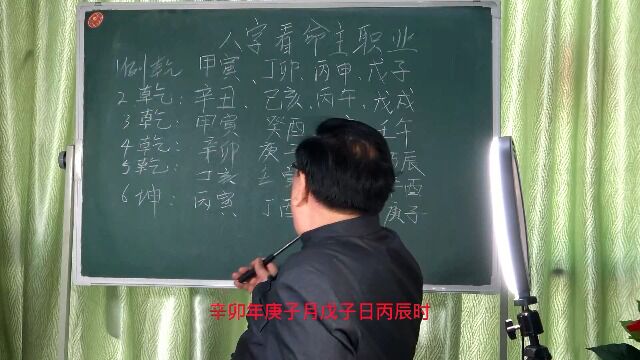 八字看命主职业
1例乾 甲寅、丁卯、丙申、戊子
2乾：辛丑、乙亥、丙午、戊戌
3乾：甲寅 癸酉 壬午
4乾：辛卯 庚子 丙辰
5乾：丁亥 壬寅 酉
6坤：丙寅 丁酉 庚子
辛卯年庚子月戊子日丙辰时